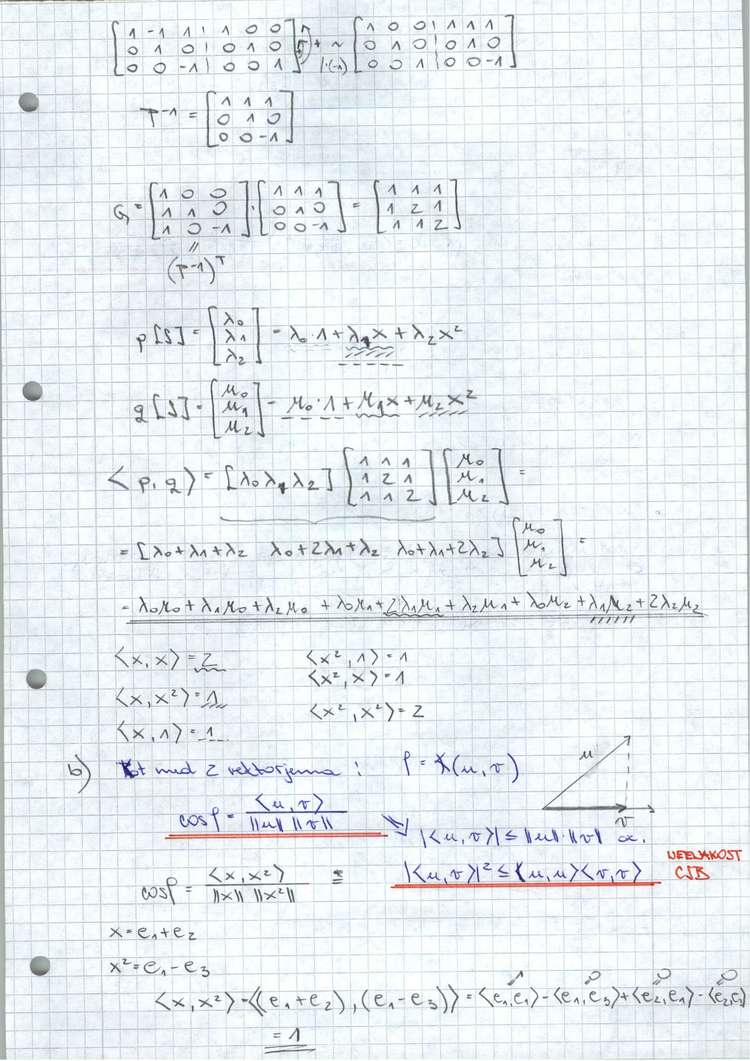 [1 -1 1 | 1 0 0; 0 1 0 | 0 1 0; 0 0 -1 | 0 0 1] + ~ [1 0 0 | 1 1 1; 0 1 0 | 0 1 0; 0 0 1 | 0 0 -1]
|·(-1)
P⁻¹ = [1 1 1; 0 1 0; 0 0 -1]
G = [1 0 0; 1 1 0; 1 0 -1] · [1 1 1; 0 1 0; 0 0 -1] = [1 1 1; 1 2 1; 1 1 2]
(P⁻¹)ᵀ
p[S] = [λ₀; λ₁; λ₂] = λ₀·1 + λ₁x + λ₂x²
q[S] = [μ₀; μ₁; μ₂] = μ₀·1 + μ₁x + μ₂x²
⟨p, q⟩ = [λ₀ λ₁ λ₂] [1 1 1; 1 2 1; 1 1 2] [μ₀; μ₁; μ₂] =
= [λ₀+λ₁+λ₂ λ₀+2λ₁+λ₂ λ₀+λ₁+2λ₂] [μ₀; μ₁; μ₂] =
= λ₀μ₀ + λ₁μ₀ + λ₂μ₀ + λ₀μ₁ + 2λ₁μ₁ + λ₂μ₁ + λ₀μ₂ + λ₁μ₂ + 2λ₂μ₂
⟨x, x⟩ = 2 ⟨x², 1⟩ = 1
⟨x², x⟩ = 1
⟨x, x²⟩ = 1
⟨x², x²⟩ = 2
⟨x, 1⟩ = 1
b) Kot med 2 vektorjema: φ = ∢(u, v)
u
v
cosφ = ⟨u, v⟩ / ‖u‖ ‖v‖ ⇒ |⟨u, v⟩| ≤ ‖u‖·‖v‖ oz.
NEENAKOST
CSB
cosφ = ⟨x, x²⟩ / ‖x‖ ‖x²‖ = |⟨u, v⟩|² ≤ ⟨u, u⟩⟨v, v⟩
x = e₁ + e₂
x² = e₁ - e₃
1 0 0 0
⟨x, x²⟩ = ⟨(e₁+e₂), (e₁-e₃)⟩ = ⟨e₁, e₁⟩ - ⟨e₁, e₃⟩ + ⟨e₂, e₁⟩ - ⟨e₂, e₃⟩
= 1